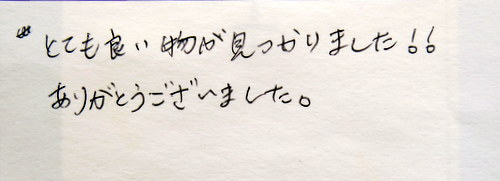 とても良い物が見つかりました!!
ありがとうございました。